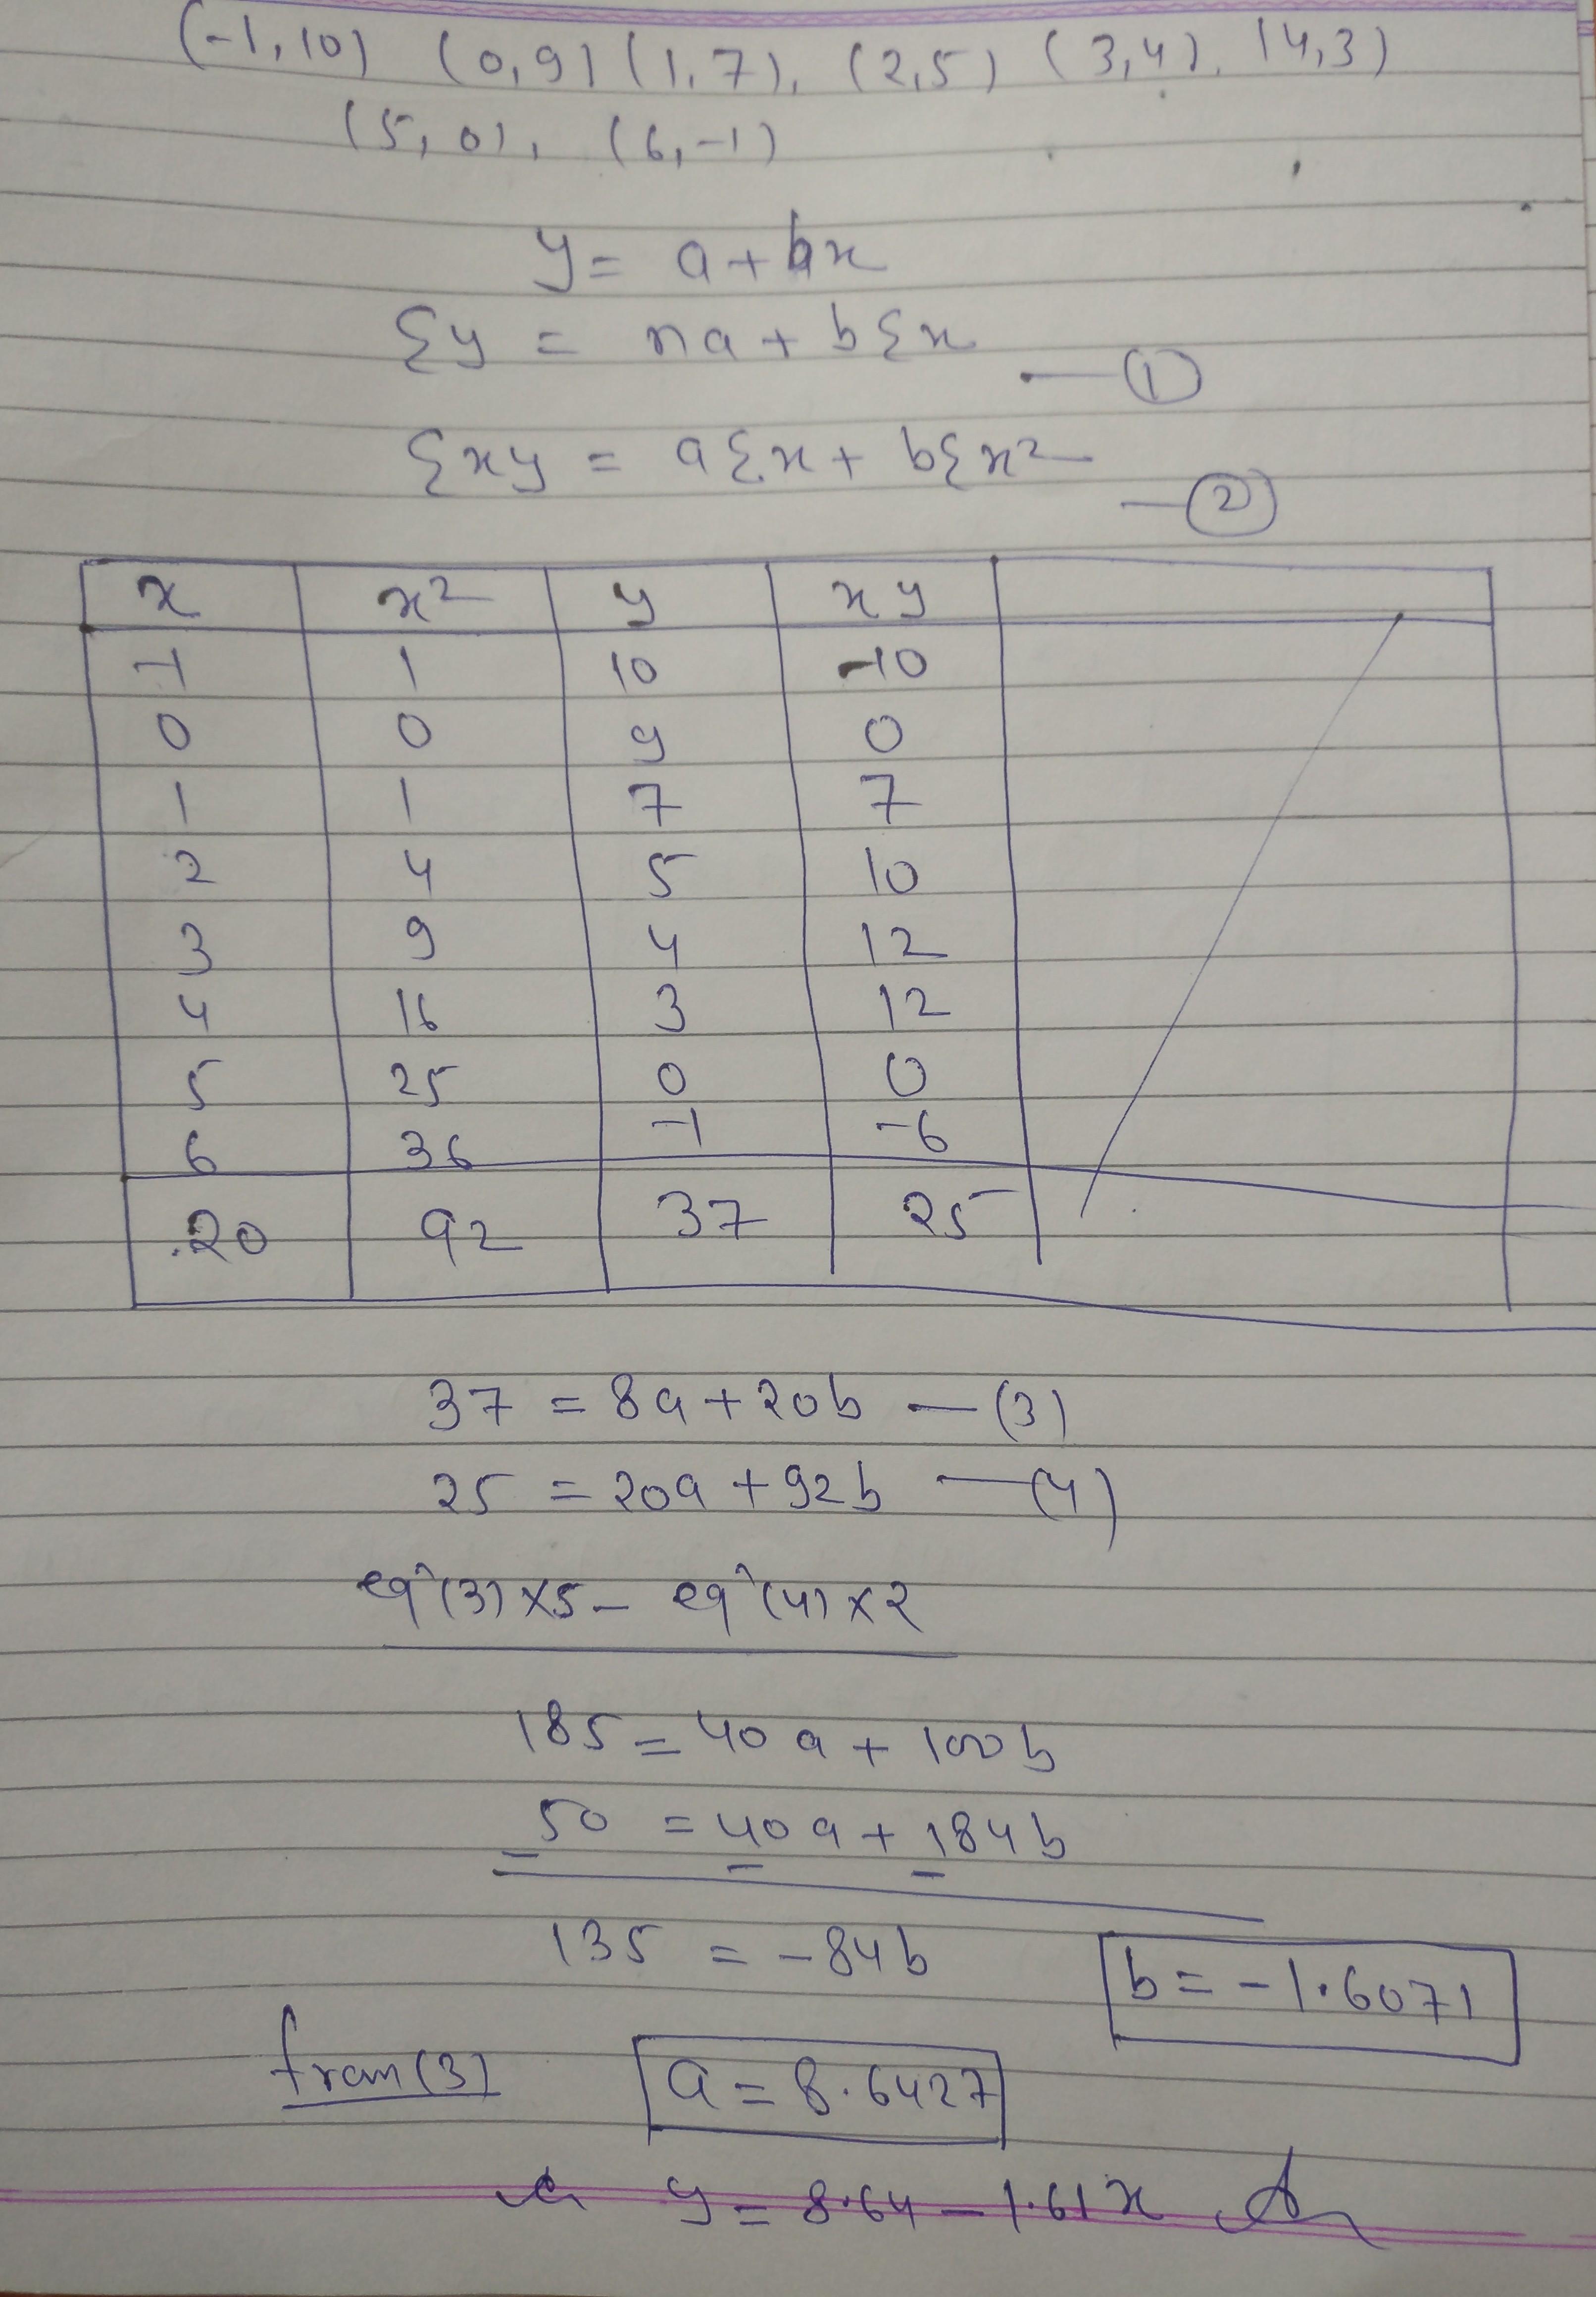 (-1,10) (0,9) (1,7), (2,5) (3,4), (4,3)
(5,0), (6,-1)
y = a + bx
Σy = na + bΣx —①
Σxy = aΣx + bΣx² —②
x x² y xy
-1 1 10 -10
0 0 9 0
1 1 7 7
2 4 5 10
3 9 4 12
4 16 3 12
5 25 0 0
6 36 -1 -6
20 92 37 25
37 = 8a + 20b —(3)
25 = 20a + 92b —(4)
eqⁿ(3)×5 - eqⁿ(4)×2
185 = 40a + 100b
50 = 40a + 184b
- - -
135 = -84b
b = -1.6071
from(3) a = 8.6427
y = 8.64 - 1.61x